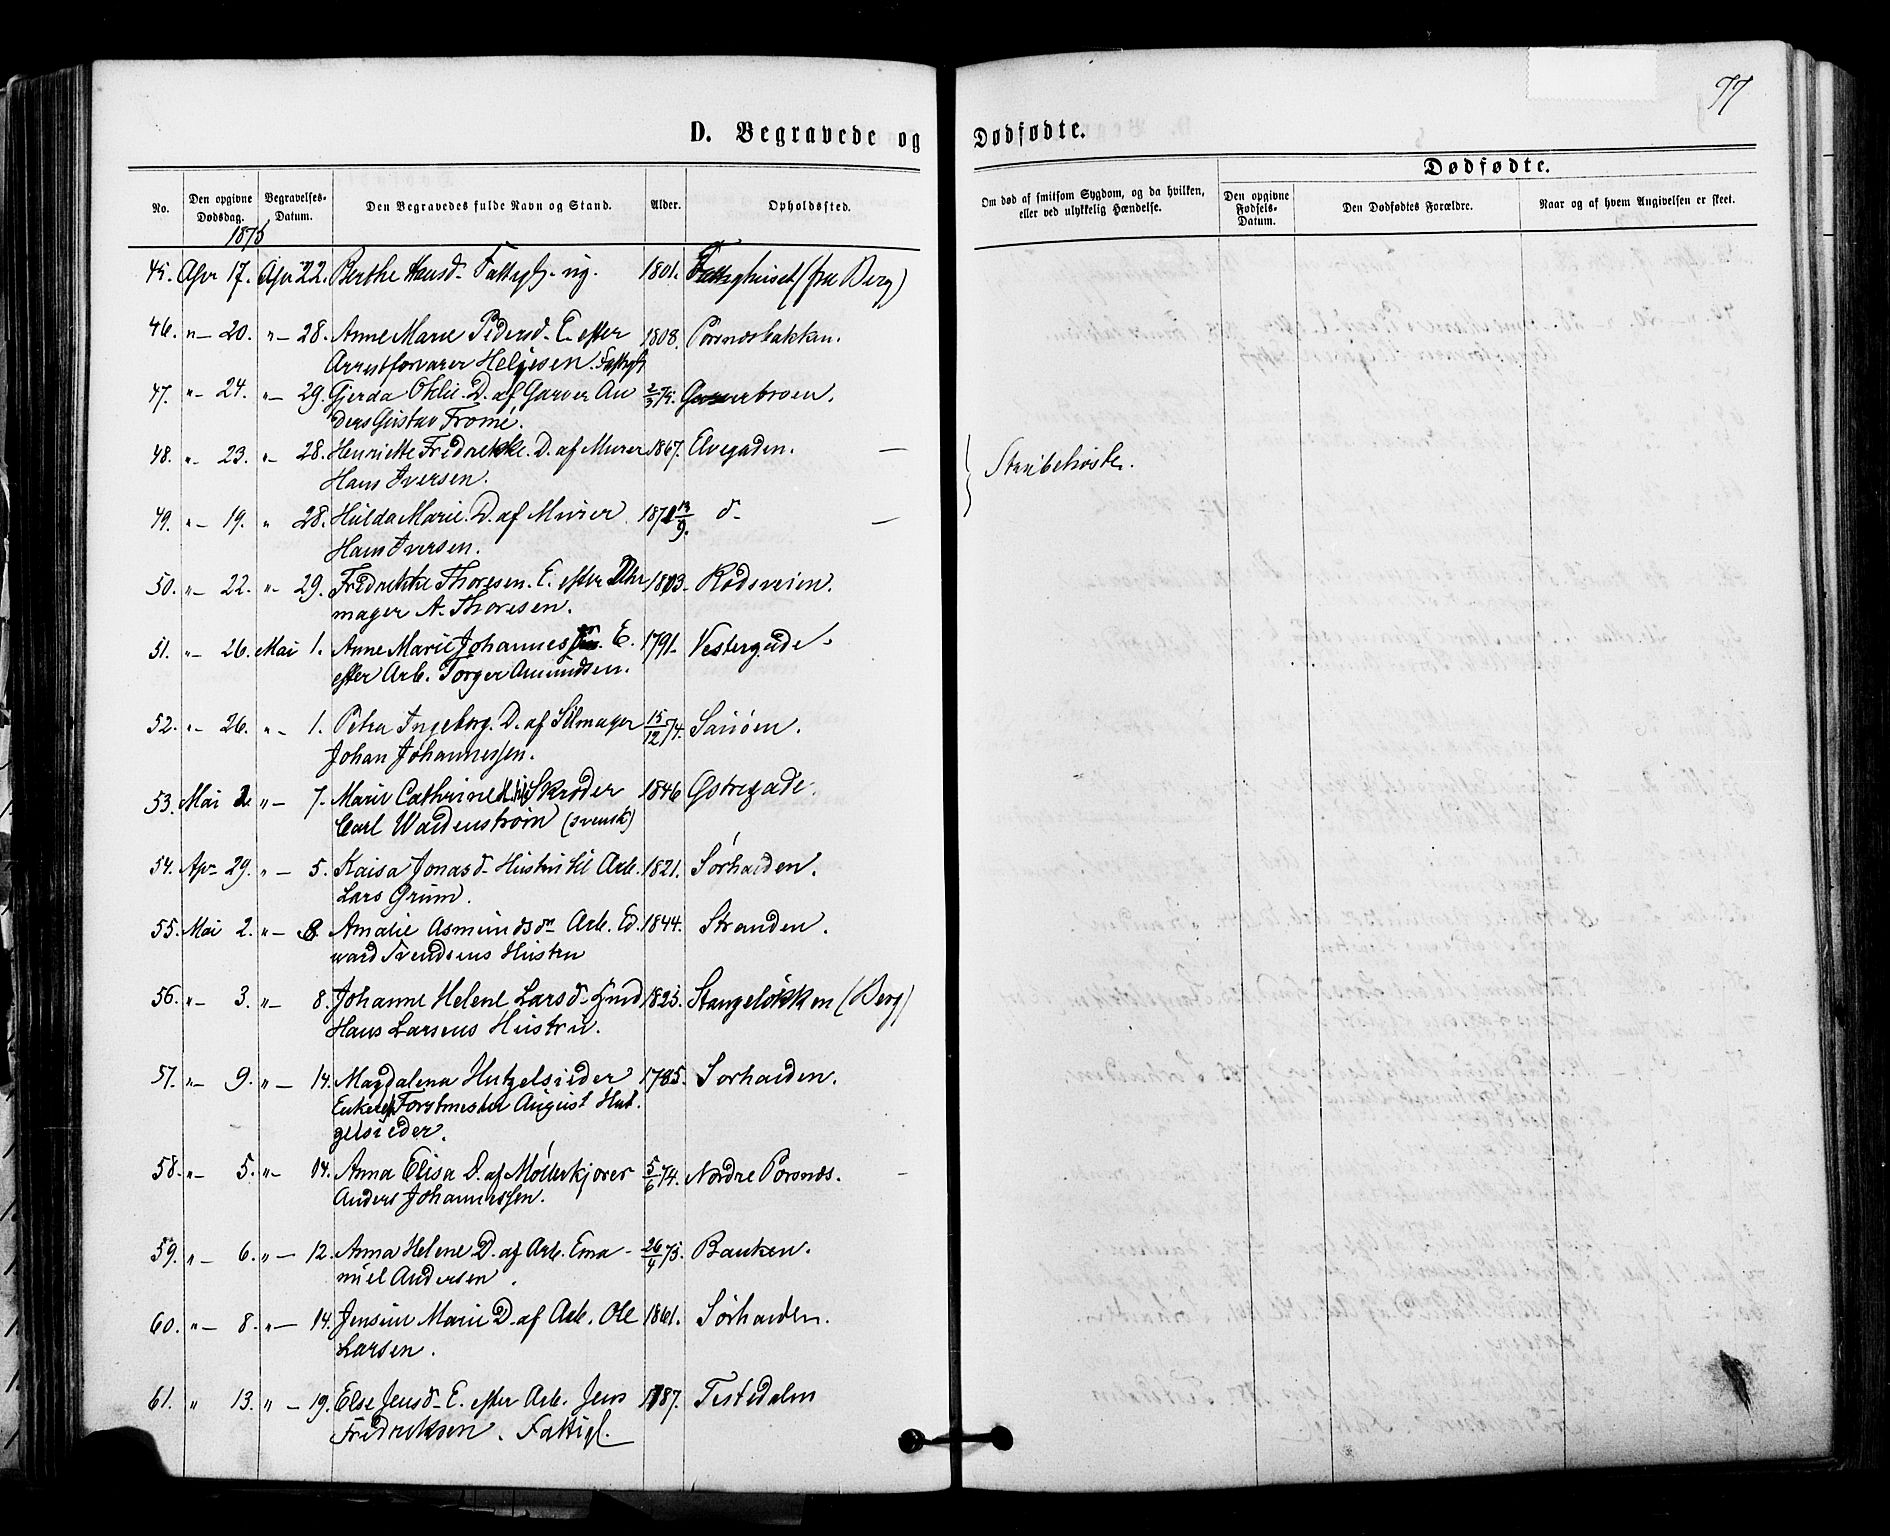 77
D. Begravede og Dødfødte.
Dødfødte.
No. Den opgivne Dødsdag. Begravelses-Datum. Den Begravedes fulde Navn og Stand. Alder. Opholdssted. Om død af smitsom Sygdom, og da hvilken, eller ved ulykkelig Hændelse. Den opgivne Fødsels-Datum. Den Dødfødtes Forældre. Naar og af hvem Angivelsen er skeet.
1875
45. Apr 17. Apr 22. Berthe Hansd. ug. 1801. Fattighuset (fra Berg)
46. " - 20. " - 28. Anne Marie Pedersd. E. efter 1808. Porsnæsbakken.
Arrestforvarer Helgesen. Fattigl
47. " - 24. " - 29. Gjerda Othlie. D. af Garver An 2/3 75. Garverbroen.
ders Gustav Fromé.
48. " - 23. " - 28. Henriette Fredrekke. D. af Murer 1867. Elvegaden. — } Strubehoste.
Hans Iversen.
49. " - 19. " 28. Hulda Marie. D. af Murer 1871 13/9. d- —
Hans Iversen.
50. " - 22. " - 29. Fredrekke Thoresen. E. efter Uhr 1813- Rødsveien.
mager A. Thoresen.
51. " - 26. Mai 1. Anne Marie Johannes E. 1791- Vestergade-
efter Arb. Torger Amundsen.
52. " - 26. " - 1. Petra Ingeborg. D. af Silmager 15/12 74. Sauøen.
Johan Johannessen.
53. Mai 2 " - 7. Marie Cathrine Skrøder 1846 Østregade.
Carl Wardenstrøm (svensk)
54. Apr 29. " - 5. Kaisa Jonasd- Hustru til Arb. 1821. Sørhaiden.
Lars Grum.
55. Mai 2. " - 8. Amalie Asmundsdr Arb. Ed. 1844. Stranden.
ward Svendsens Hustru
56. " - 3. " - 8. Johanne Helene Larsd- Gmd 1823. Stangeløkken (Berg)
Hans Larsens Hustru.
57. " - 9. " - 14. Magdalena Hutzelsieder 1785. Sorhaiden.
Enke eft Forstmester August Hut-
zelsieder.
58. " - 5. " - 14. Anna Elisa D. af Møllerkjører 5/6 74. Nordre Porsnæs. -
Anders Johannessen.
59. " - 6. " - 12. Anna Helene D. af Arb. Ema- 26/4 75. Banken.
nuel Andersen.
60. " - 8. " - 14. Jensine Marie D. af Arb. Ole 1861. Sørhaiden.
Larsen.
61. " 13. " - 19. Else Jensd- E. efter Arb. Jens 1787. Tistedalen
Fredriksen. Fattigl.